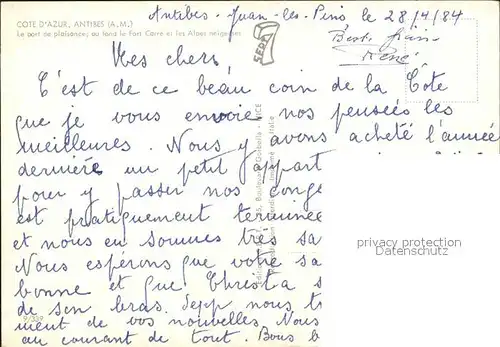 COTE D'AZUR, ANTIBES (A.M.)
Le port de plaisance, au fond le Fort Carré et les Alpes neigeuses
Antibes-Juan-les-Pins le 28/4/84
SEPA
René
Mes chers,
C'est de ce beau coin de la Côte
que je vous envoie nos pensées les
meilleures. Nous y avons acheté l'année
dernière un petit appart
pour y passer nos congé
est pratiquement terminée
et nous en sommes très sa
Nous espérons que votre sa
bonne et que Christa s
de son bras. Sepp nous t
ment de vos nouvelles. Nous
au courant de tout. Bons b
privacy protection
watermark
9/339